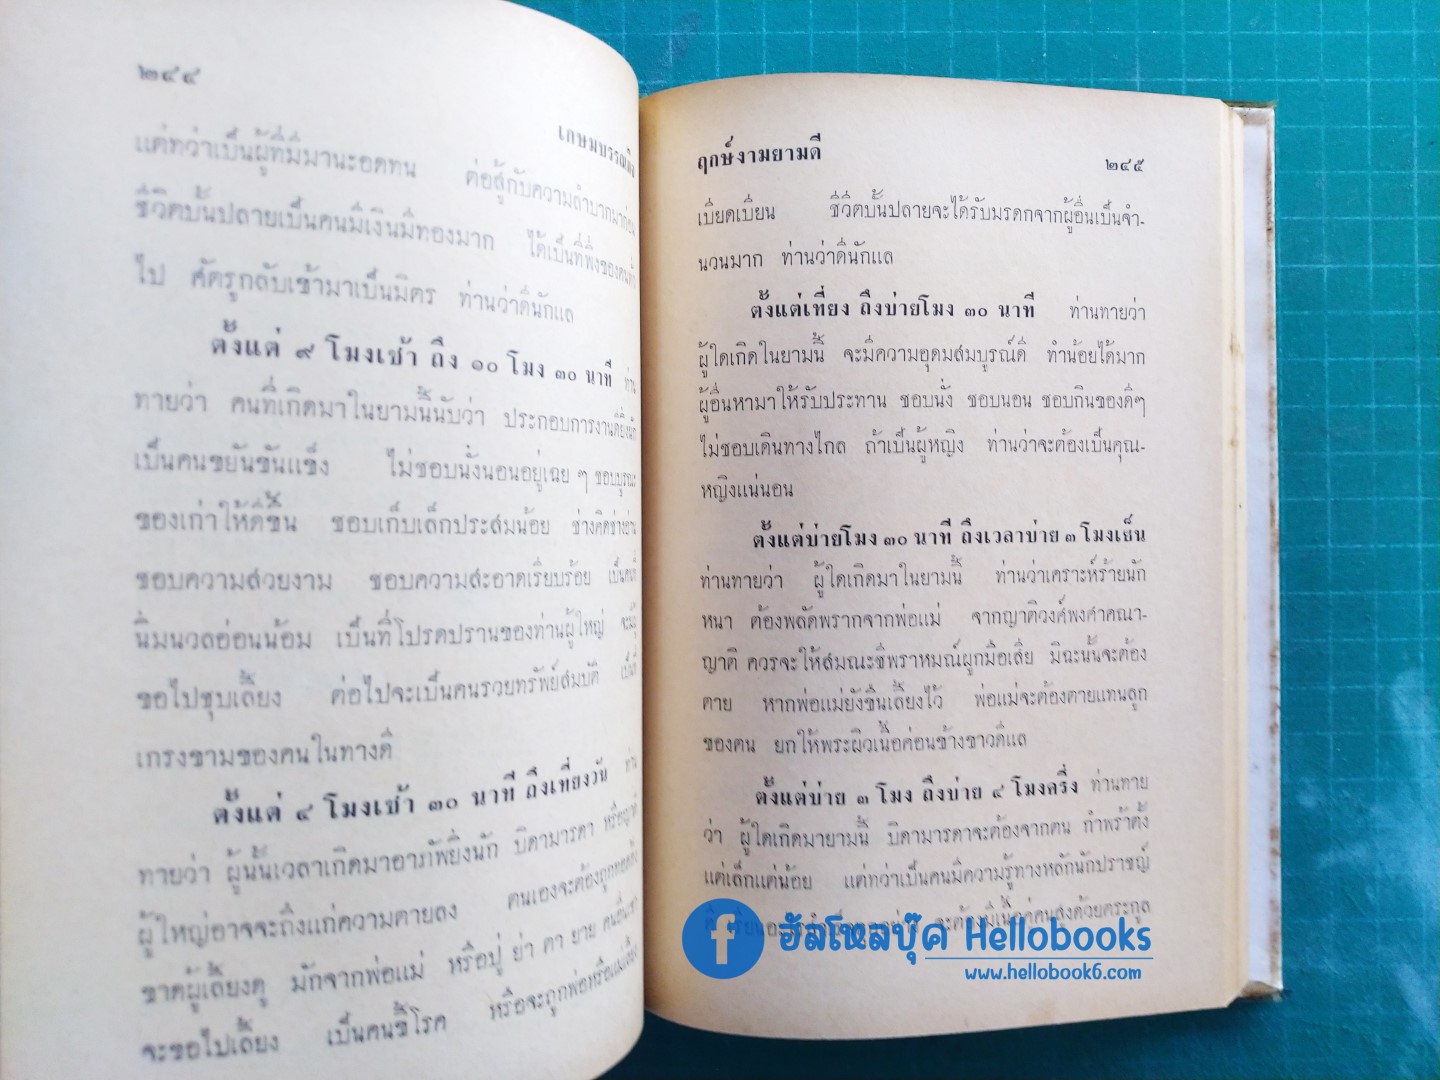 ๒๔๔
เกษมบรรณกิจ
แต่ทว่าเป็นผู้ที่มีมานะอดทน ต่อสู้กับความลำบากมาก่อน
ชีวิตบั้นปลายเป็นคนมีเงินมีทองมาก ได้เป็นที่พึ่งของคน
ไป ศัตรูกลับเข้ามาเป็นมิตร ท่านว่าดีนักแล
ตั้งแต่ ๙ โมงเช้า ถึง ๑๐ โมง ๓๐ นาที ท่าน
ทายว่า คนที่เกิดมาในยามนี้นับว่า ประกอบการงานดียิ่งนัก
เป็นคนขยันขันแข็ง ไม่ชอบนั่งนอนอยู่เฉย ๆ ชอบบูรณะ
ของเก่าให้ดีขึ้น ชอบเก็บเล็กประสมน้อย ช่างคิดช่างอ่าน
ชอบความสวยงาม ชอบความสะอาดเรียบร้อย เป็นคนที่
นิ่มนวลอ่อนน้อม เป็นที่โปรดปรานของท่านผู้ใหญ่ จะมีผู้
ขอไปชุบเลี้ยง ต่อไปจะเป็นคนรวยทรัพย์สมบัติ เป็นที่
เกรงขามของคนในทางดี
ตั้งแต่ ๔ โมงเช้า ๓๐ นาที ถึงเที่ยงวัน ท่าน
ทายว่า ผู้นั้นเวลาเกิดมาอาภัพยิ่งนัก บิดามารดา หรือญาติ
ผู้ใหญ่อาจจะถึงแก่ความตายลง ตนเองจะต้องถูกทอดทิ้ง
ขาดผู้เลี้ยงดู มักจากพ่อแม่ หรือปู่ ย่า ตา ยาย คนอื่นเขา
จะขอไปเลี้ยง เป็นคนขี้โรค หรือจะถูกพ่อหรือแม่เลี้ยง
ฤกษ์งามยามดี
๒๔๕
เบียดเบียน ชีวิตบั้นปลายจะได้รับมรดกจากผู้อื่นเป็นจำ-
นวนมาก ท่านว่าดีนักแล
ตั้งแต่เที่ยง ถึงบ่ายโมง ๓๐ นาที ท่านทายว่า
ผู้ใดเกิดในยามนี้ จะมีความอุดมสมบูรณ์ดี ทำน้อยได้มาก
ผู้อื่นหามาให้รับประทาน ชอบนั่ง ชอบนอน ชอบกินของดีๆ
ไม่ชอบเดินทางไกล ถ้าเป็นผู้หญิง ท่านว่าจะต้องเป็นคุณ-
หญิงแน่นอน
ตั้งแต่บ่ายโมง ๓๐ นาที ถึงเวลาบ่าย ๓ โมงเย็น
ท่านทายว่า ผู้ใดเกิดมาในยามนี้ ท่านว่าเคราะห์ร้ายนัก
หนา ต้องพลัดพรากจากพ่อแม่ จากญาติวงศ์พงศาคณา-
ญาติ ควรจะให้สมณะชีพราหมณ์ผูกมือเสีย มิฉะนั้นจะต้อง
ตาย หากพ่อแม่ยังขืนเลี้ยงไว้ พ่อแม่จะต้องตายแทนลูก
ของตน ยกให้พระผิวเนื้อค่อนข้างขาวดีแล
ตั้งแต่บ่าย ๓ โมง ถึงบ่าย ๔ โมงครึ่ง ท่านทาย
ว่า ผู้ใดเกิดมายามนี้ บิดามารดาจะต้องจากตน กำพร้าตั้ง
แต่เล็กแต่น้อย แต่ทว่าเป็นคนมีความรู้ทางหลักนักปราชญ์
จะต้องมีเนื้อคู่คนสูงด้วยตระกูล
อัลโหลบุ๊ค Hellobooks
www.hellobook6.com